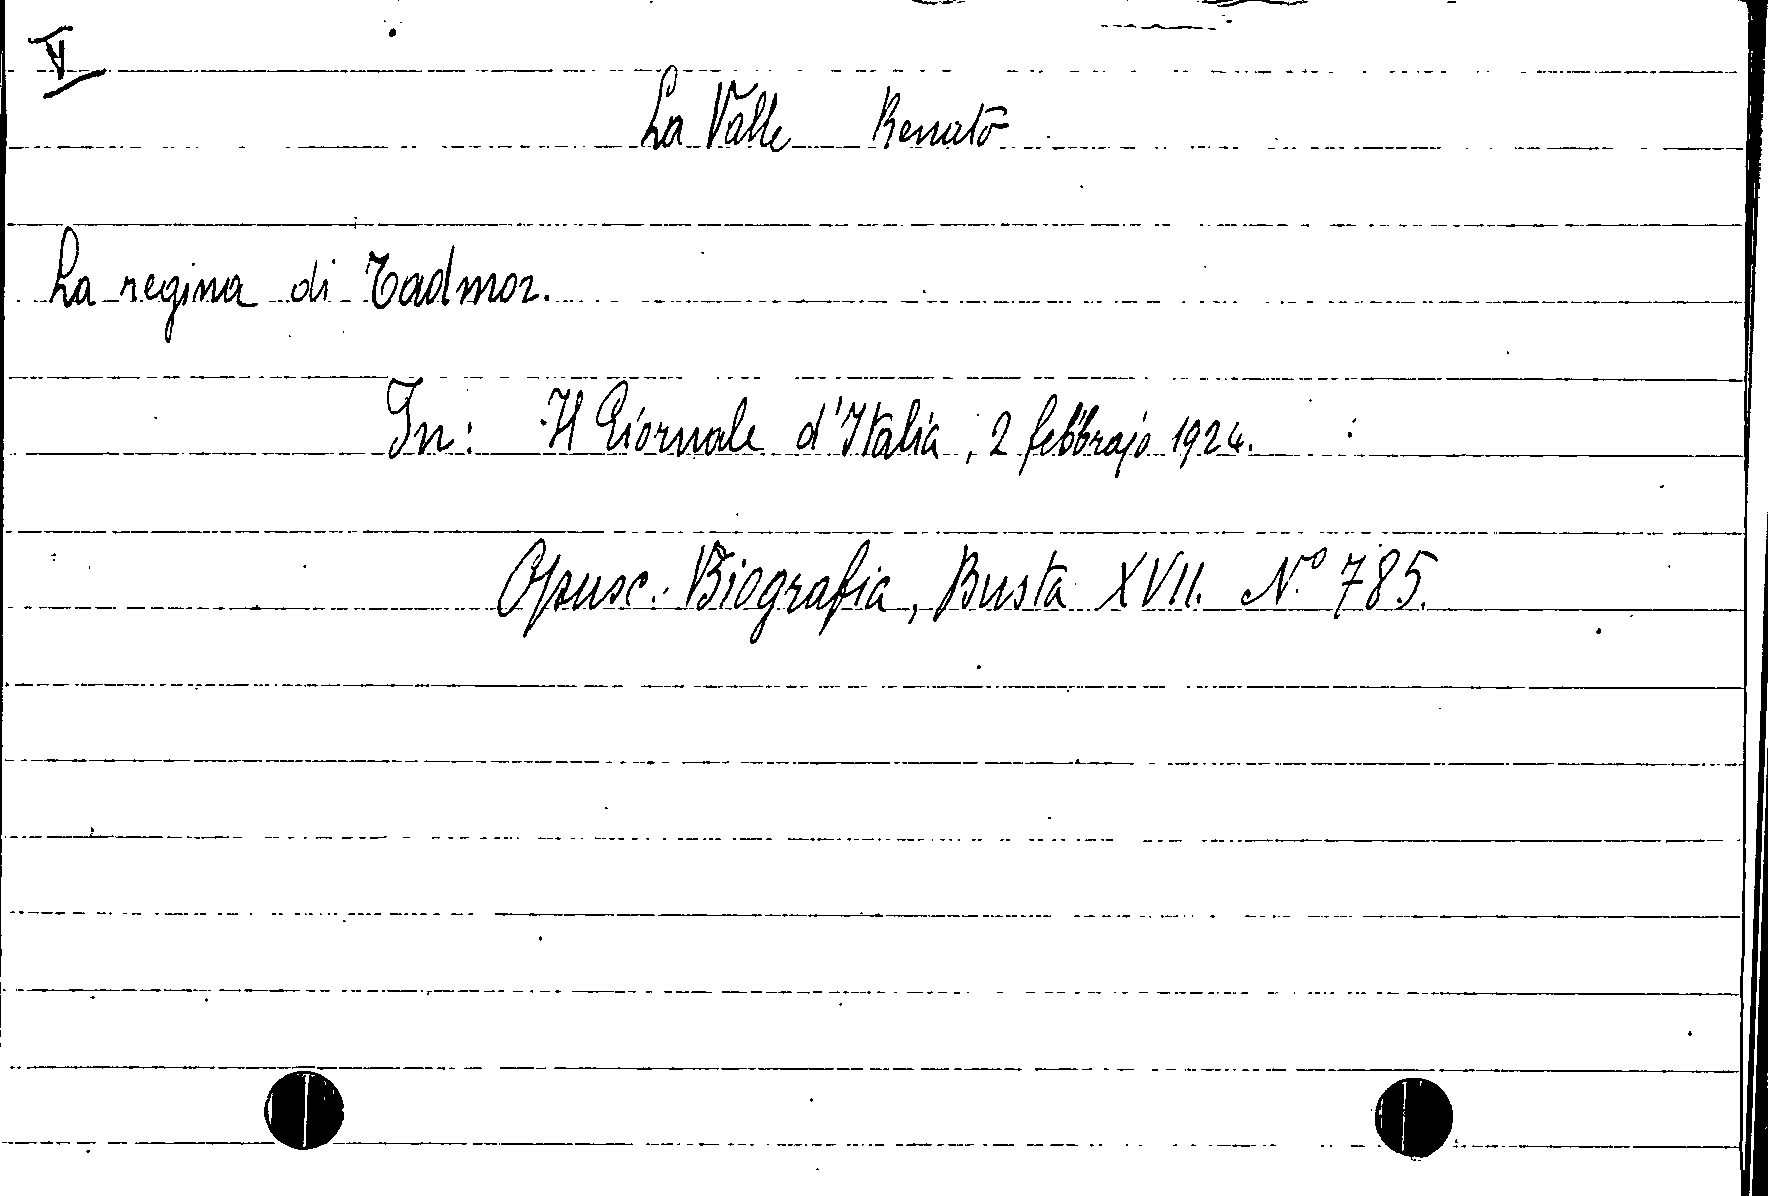 V
La Valle Renato
La regina di Tadmor.
In: Il Giornale d'Italia, 2 febbrajo 1924.
Opusc. Biografia, Busta XVII. N.º 785.